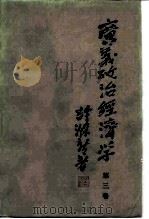 廣義政治經濟學
第三卷
許滌新著